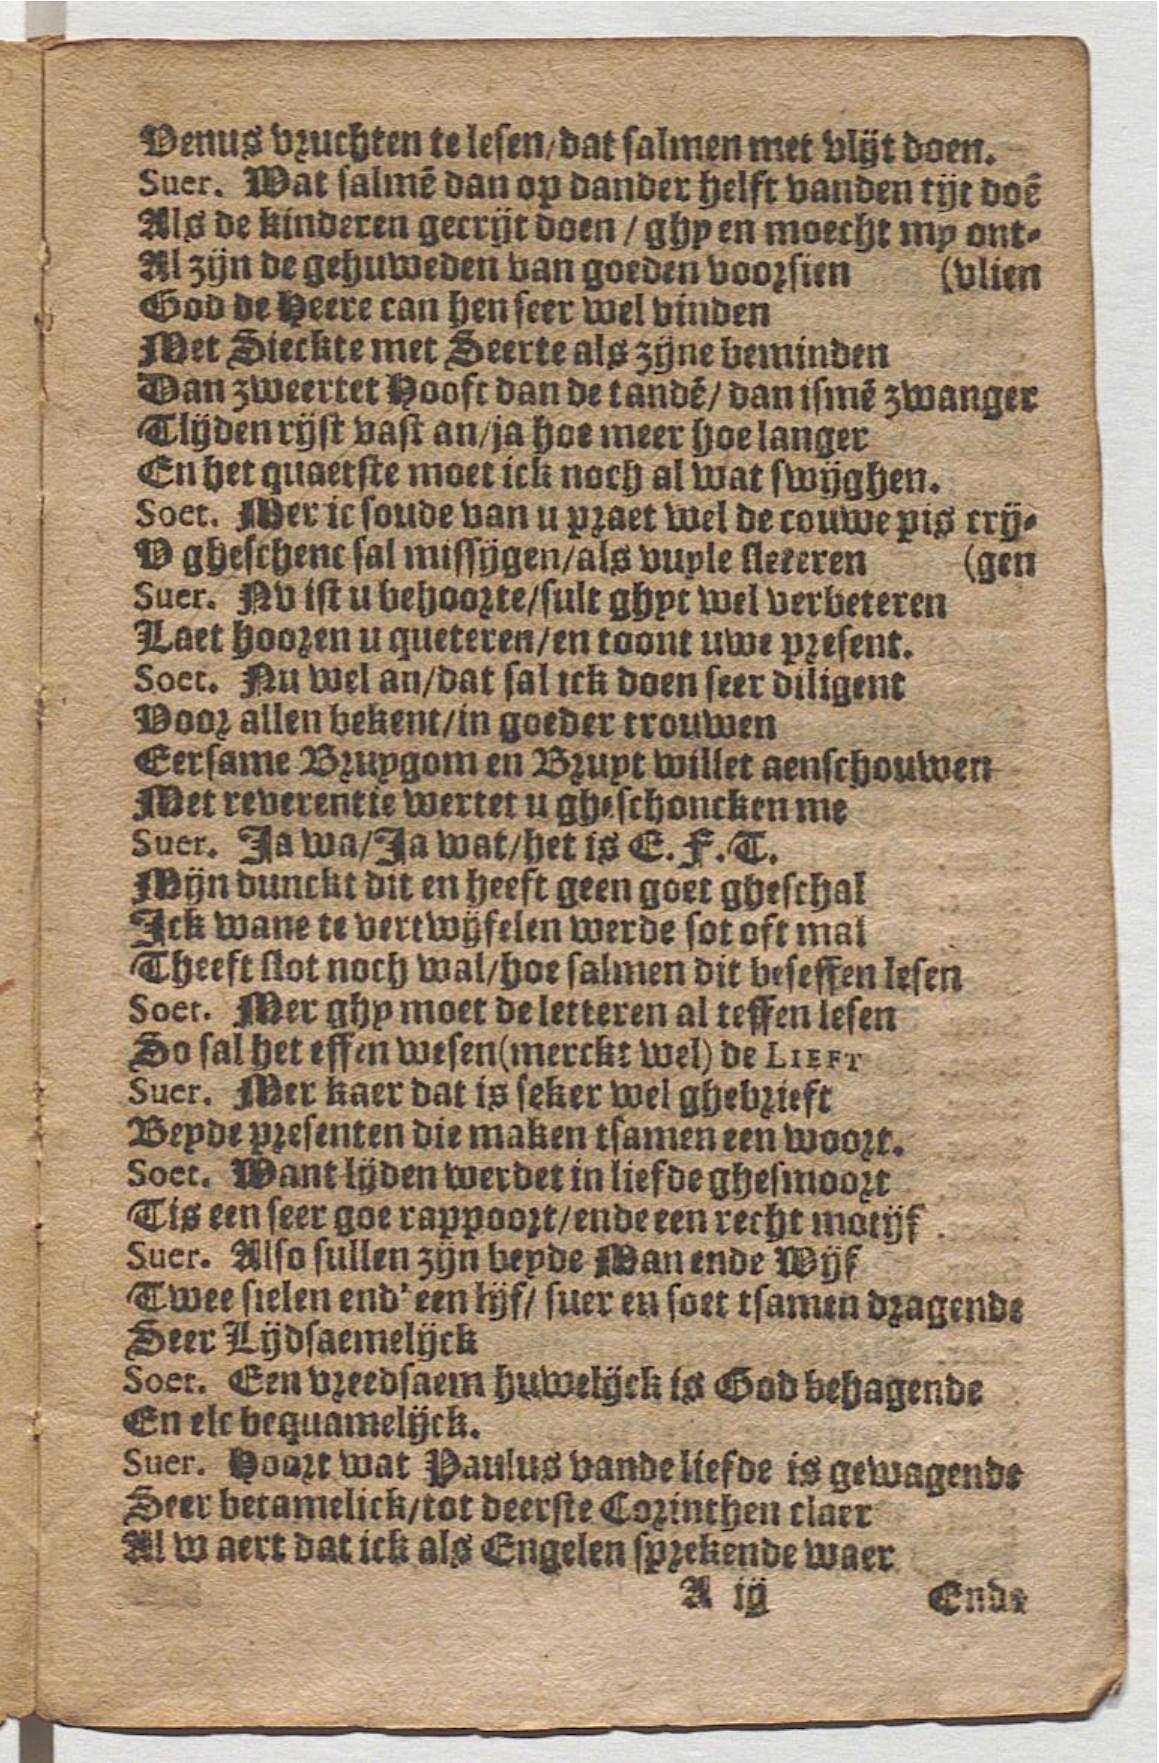 Venus vruchten te lesen/dat salmen met vlijt doen.
Suer. Wat salmē dan op dander helft vanden tijt doē
Als de kinderen gecrijt doen / ghy en moecht my ont-
Al zijn de gehuweden van goeden voorsien (vlien
God de Heere can hen seer wel vinden
Met Sieckte met Seerte als zijne beminden
Dan zweertet Hooft dan de tandē/ dan ismē zwanger
Tlijden rijst vast an/ja hoe meer hoe langer
En het quaetste moet ick noch al wat swijghen.
Soet. Mer ic soude van u praet wel de couwe pis crij-
V gheschenc sal missijgen/als vuyle sleteren (gen
Suer. Nv ist u behoorte/sult ghyt wel verbeteren
Laet hooren u queteren/en toont uwe present.
Soet. Nu wel an/dat sal ick doen seer diligent
Voor allen bekent/in goeder trouwen
Eersame Bruygom en Bruyt willet aenschouwen
Met reverentie wertet u gheschoncken me
Suer. Ja wa/Ja wat/het is E. F. T.
Mijn dunckt dit en heeft geen goet gheschal
Ick wane te vertwijfelen werde sot oft mal
Theeft slot noch wal/hoe salmen dit beseffen lesen
Soet. Mer ghy moet de letteren al teffen lesen
So sal het effen wesen(merckt wel) de LIEFT
Suer. Mer kaer dat is seker wel ghebrieft
Beyde presenten die maken tsamen een woort.
Soet. Want lijden werdet in liefde ghesmoort
Tis een seer goe rappoort/ende een recht motijf
Suer. Also sullen zijn beyde Man ende Wijf
Twee sielen end' een lijf/ suer en soet tsamen dragende
Seer Lijdsaemelijck
Soet. Een vreedsaem huwelijck is God behagende
En elc bequamelijck.
Suer. Hoort wat Paulus vande liefde is gewagende
Seer betamelick/tot deerste Corinthen claer
Al w aert dat ick als Engelen sprekende waer
A iij Ende